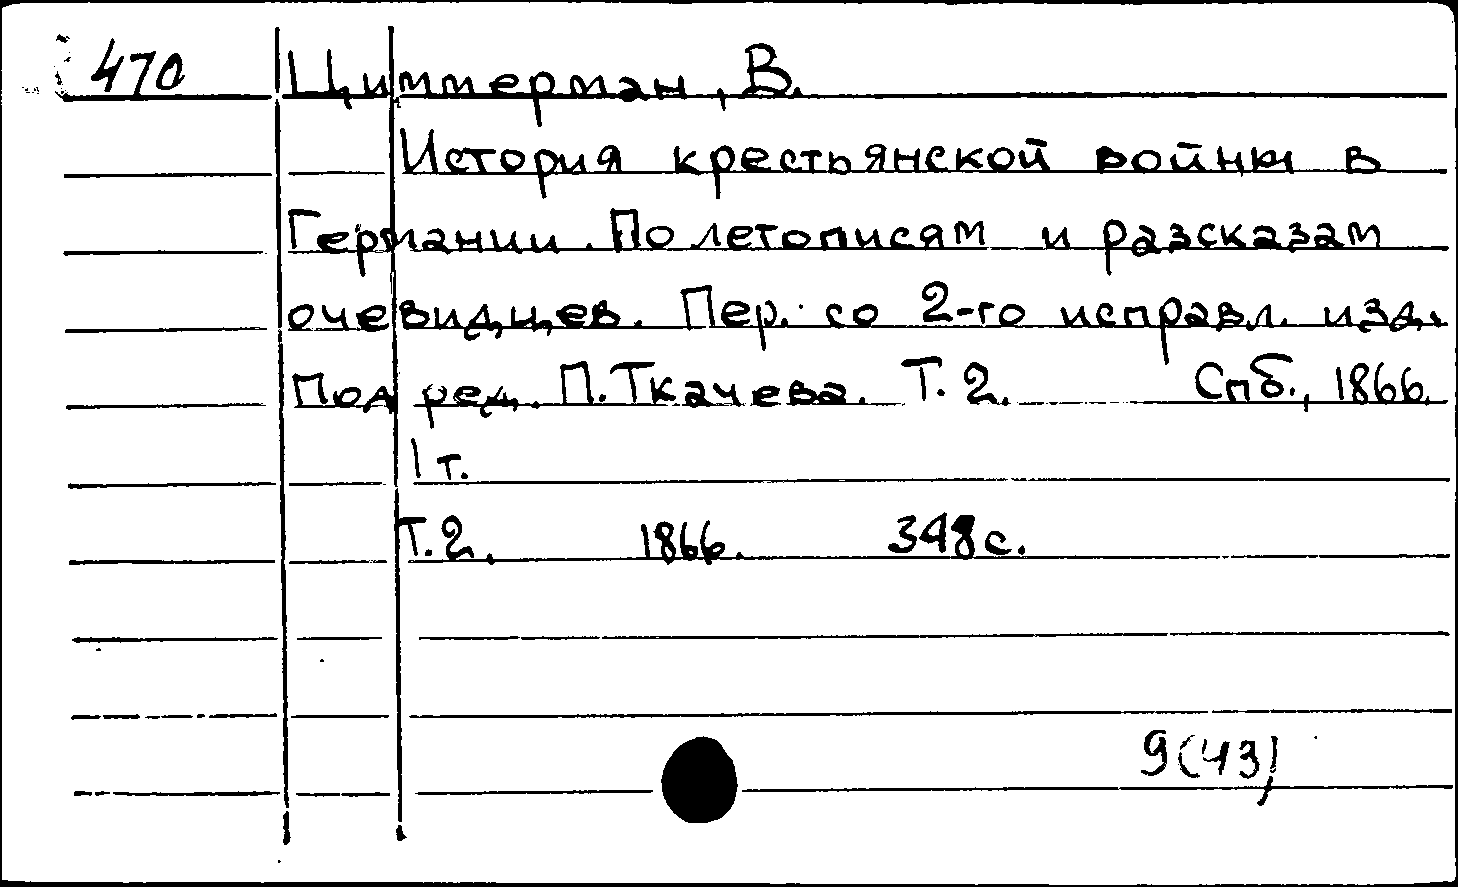 470 Циммерман, В.
История крестьянской войны в
Германии. По летописям и разсказам
очевидцев. Пер. со 2-го исправл. изд.
Под ред. П. Ткачева. Т. 2. Спб., 1866.
1 т.
Т. 2. 1866. 348 с.
9(43)